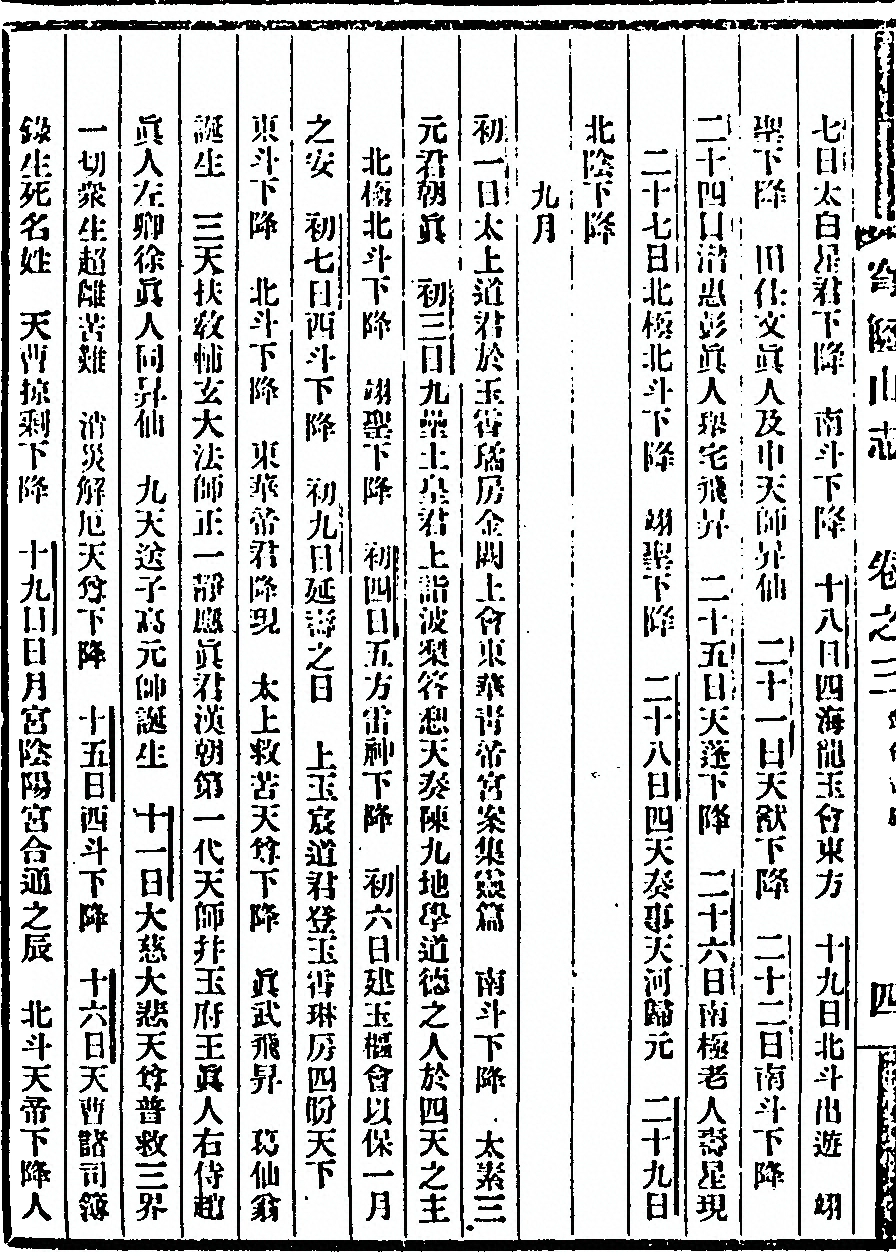 山志　卷之三　四
七日太白星君下降　南斗下降　十八日四海龍王會東方　十九日北斗出遊　翊
聖下降　田仕文眞人及申天師昇仙　二十一日天猷下降　二十二日南斗下降
二十四日潛惠彭眞人舉宅飛昇　二十五日天蓬下降　二十六日南極老人壽星現
二十七日北極北斗下降　翊聖下降　二十八日四天奏事天河歸元　二十九日
北陰下降
九月
初一日太上道君於玉霄璚房金闕上會東華靑帝宮案集靈篇　南斗下降　太素三
元君朝眞　初三日九壘土皇君上詣波梨答惒天奏陳九地學道德之人於四天之主
北極北斗下降　翊聖下降　初四日五方雷神下降　初六日建玉樞會以保一月
之安　初七日西斗下降　初九日延壽之日　上玉宸道君登玉霄琳房四盼天下
東斗下降　北斗下降　東華帝君降現　太上救苦天尊下降　眞武飛昇　葛仙翁
誕生　三天扶敎輔玄大法師正一靜應眞君漢朝第一代天師幷玉府王眞人右侍趙
眞人左卿徐眞人同昇仙　九天送子高元帥誕生　十一日大慈大悲天尊普救三界
一切衆生超離苦難　消災解厄天尊下降　十五日西斗下降　十六日天曹諸司簿
錄生死名姓　天曹掠剩下降　十九日日月宮陰陽宮合通之辰　北斗天帝下降人